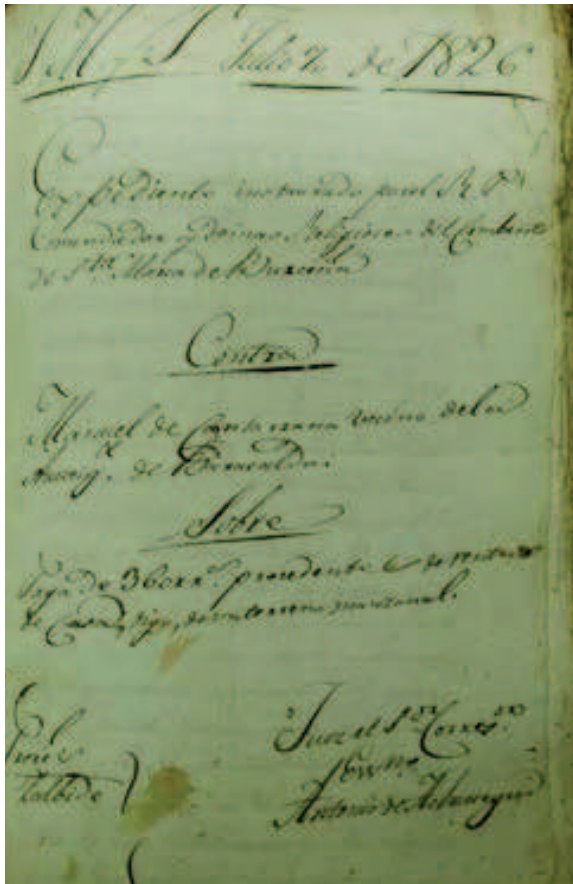 Julio 7 de 1826
Expediente instruado por el R. P.
Comendador y demas Religiosos del Combento
de Sta Maria de Burceña
Contra
Manuel de vecino de la
Anteig.ª de Baracaldo.
Sobre
Paga de 360 rr.s procedente de rentas
de Casa, digo, de un terreno manzanal.
Juez el S.or Correg.or
Essno
Antonio de